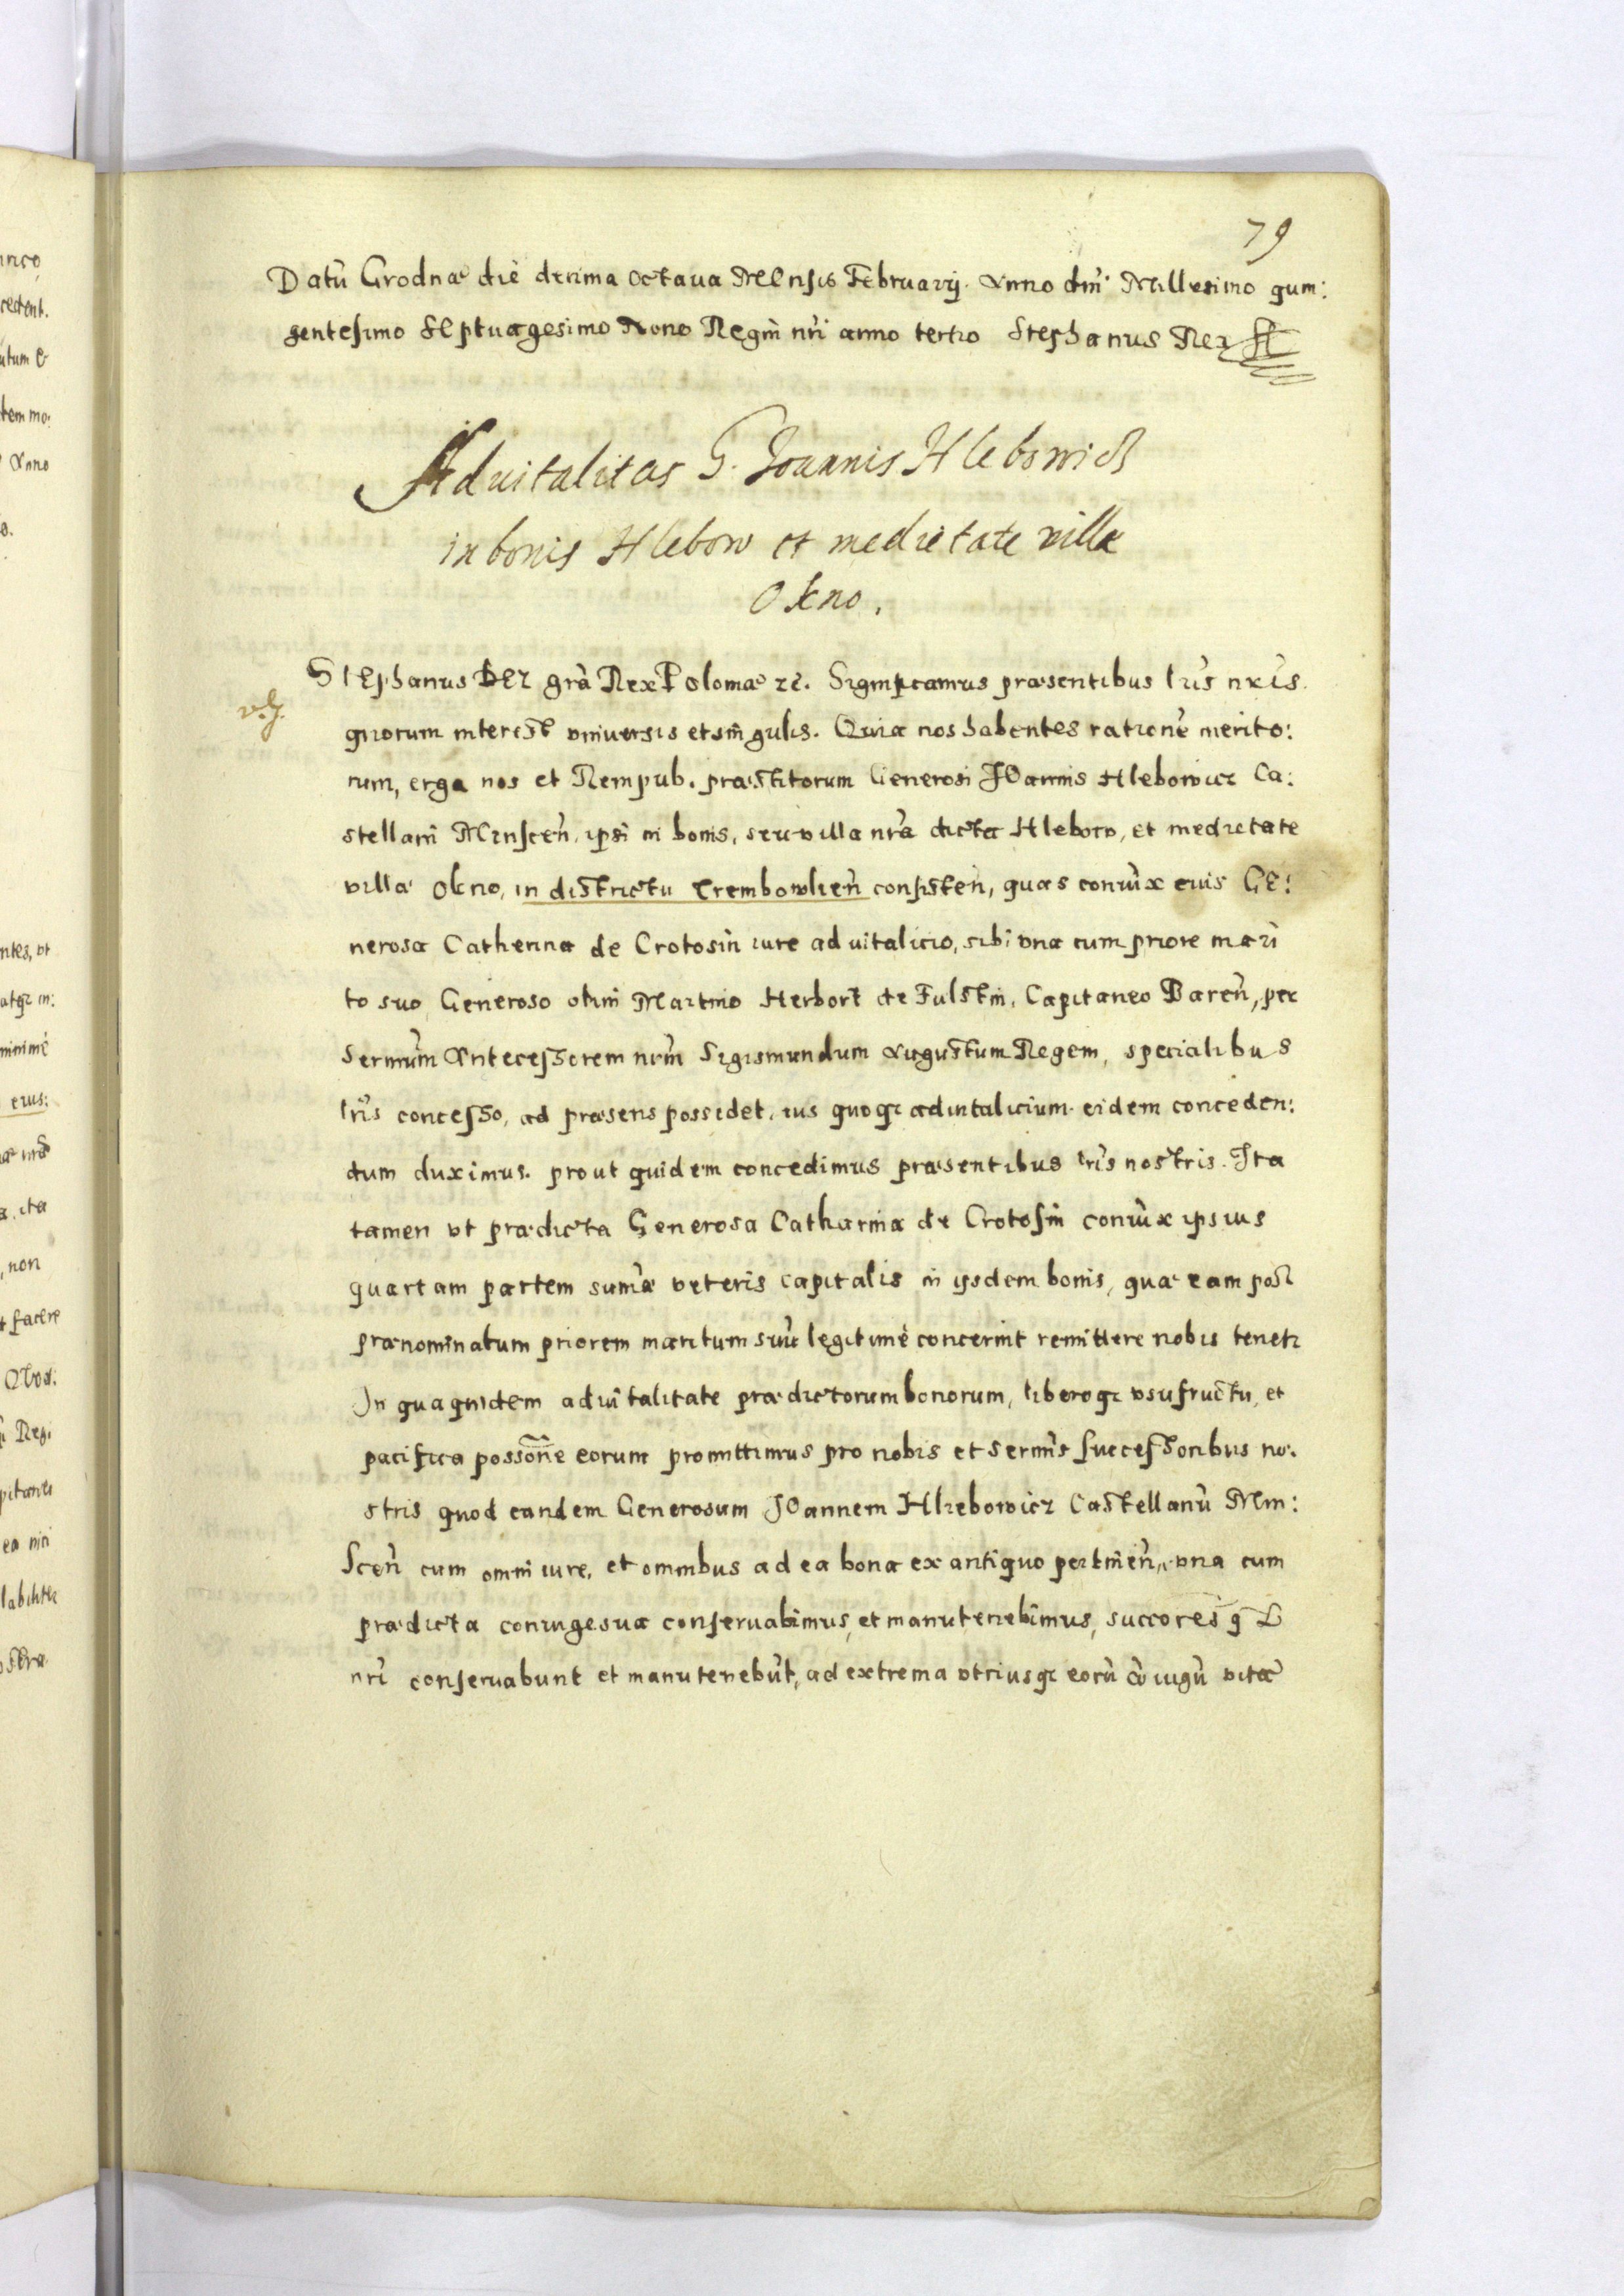 79
Datū Grodnæ die decima octaua Mensis Februarij. Anno dni Millesimo quin:
gentesimo septuagesimo Nono Regni nri anno tertio Stephanus Rex
Aduitalitas G. Joannis Hlebowicz
in bonis Hlebow et medietate villæ
Okno.
Stephanus Dei gra Rex Poloniæ zc. Significamus præsentibus lris nris
quorum interest vniuersis et singulis. Quia nos habentes rationē merito:
rum, erga nos et Rempub. præstitorum Generosi Joannis Hlebowicz Ca:
stellani Minscen̄. ipsi in bonis, seu villa nra dicta Hlebow, et medietate
villæ Okno, in districtu Trembowlien̄ consisten̄, quas coniūx eius Ge:
nerosa Catherina de Crotosin iure aduitalicio, sibi vna cum priore mari
to suo Generoso olim Martino Herbort de Fulstin, Capitaneo Baren̄, per
sermūm Antecessorem nrm̄ Sigismundum Augustum Regem, specialibus
lris concesso, ad præsens possidet, ius quoq; aduitalicium eidem conceden:
dum duximus. prout quidem concedimus præsentibus lris nostris. Ita
tamen vt prædicta Generosa Catharina de Crotosin coniūx ipsius
quartam partem sum̄æ veteris capitalis in ijsdem bonis, quæ eam post
prænominatum priorem maritum suū legitimè concernit remittere nobis tenetr
In qua quidem aduitalitate prædictorum bonorum, liberoq; vsufructu, et
pacifica posson̄e eorum promittimus pro nobis et sermis successoribus no:
stris quod eandem Generosum Joannem Hlebowicz Castellanū Min:
scen̄ cum omni iure, et omnibus ad ea bona ex antiquo pertinen̄, vna cum
prædicta coniuge sua conseruabimus, et manutenebimus, succores q
nri conseruabunt et manutenebūt, ad extrema vtriusq; eorū cōiugū vitæ